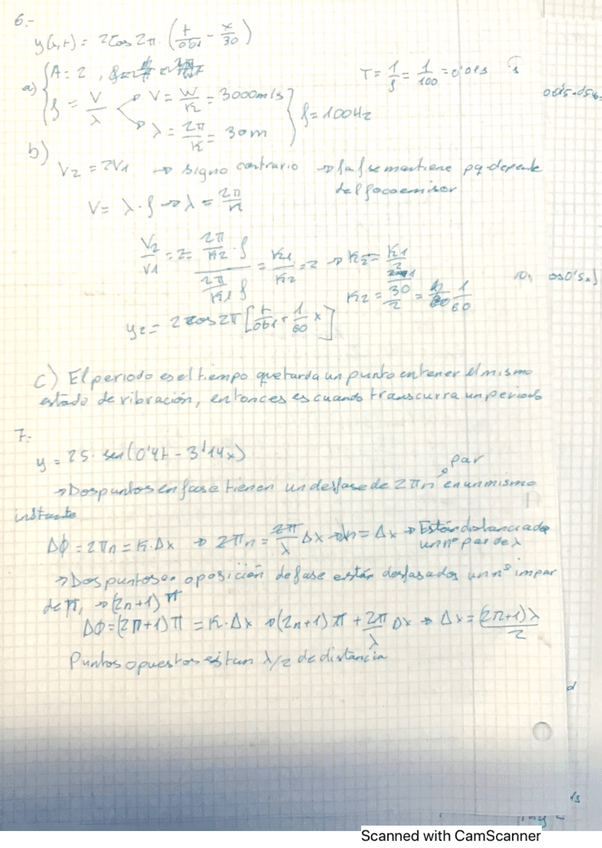 6.-
y(x,t) = 2cos2π · (t/0'01 - x/30)
a) A = 2,
f = V/λ → V = W/K = 3000m/s
→ λ = 2π/K = 30m } f = 100Hz
T = 1/f = 1/100 = 0'01s
b)
V2 = 2V1 → signo contrario → la f se mantiene pq depende
del foco emisor
V = λ · f → λ = 2π/K
V2/V1 = 2 = (2π/K2 · f)/(2π/K1 · f) = K1/K2 = 2 → K2 = K1/2
K2 = 30/2 = 1/60
y2 = 2cos2π [t/0'01 + 1/60 x]
c) El periodo es el tiempo que tarda un punto en tener el mismo
estado de vibración, entonces es cuando transcurra un periodo
7.-
y = 25 · sen(0'4t - 3'14x)
par
→ Dos puntos en fase tienen un desfase de 2πn en un mismo
instante
Δφ = 2πn = K·Δx → 2πn = 2π/λ Δx → λn = Δx → Están distanciados
un nº par de λ
→ Dos puntos en oposición de fase están desfasados un nº impar
de π, → (2n+1)π
Δφ = (2n+1)π = K·Δx → (2n+1)π + 2π/λ Δx → Δx = (2n+1)λ/2
Puntos opuestos están λ/2 de distancia
Scanned with CamScanner